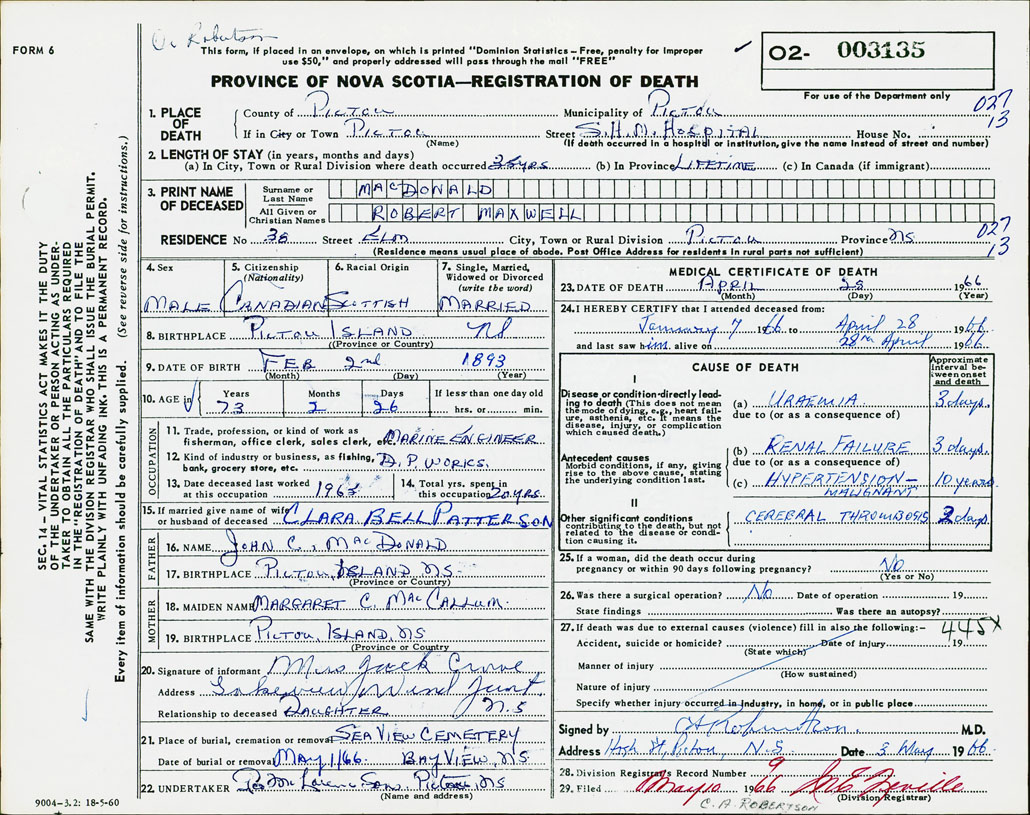 FORM 6
C. Robertson
This form, if placed in an envelope, on which is printed "Dominion Statistics – Free, penalty for improper
use $50," and properly addressed will pass through the mail "FREE"
02- 003135
PROVINCE OF NOVA SCOTIA—REGISTRATION OF DEATH
For use of the Department only
027
13
1. PLACE OF DEATH
County of Pictou Municipality of Pictou
If in City or Town Pictou Street S.H.M. Hospital House No.
(Name) (If death occurred in a hospital or institution, give the name instead of street and number)
2. LENGTH OF STAY (in years, months and days)
(a) In City, Town or Rural Division where death occurred 35 yrs (b) In Province LIFETIME (c) In Canada (if immigrant)
3. PRINT NAME OF DECEASED
Surname or Last Name MACDONALD
All Given or Christian Names ROBERT MAXWELL
RESIDENCE No 38 Street Elm City, Town or Rural Division Pictou Province NS
027
13
(Residence means usual place of abode. Post Office Address for residents in rural parts not sufficient)
4. Sex MALE
5. Citizenship (Nationality) CANADIAN
6. Racial Origin SCOTTISH
7. Single, Married, Widowed or Divorced (write the word) MARRIED
8. BIRTHPLACE PICTOU ISLAND NS
(Province or Country)
9. DATE OF BIRTH FEB 2nd 1893
(Month) (Day) (Year)
10. AGE in Years 73 Months 2 Days 26 If less than one day old hrs. or min.
OCCUPATION
11. Trade, profession, or kind of work as
fisherman, office clerk, sales clerk, etc. MARINE ENGINEER
12. Kind of industry or business, as fishing,
bank, grocery store, etc. D.P. WORKS.
13. Date deceased last worked
at this occupation 1963
14. Total yrs. spent in
this occupation 20 yrs.
15. If married give name of wife
or husband of deceased CLARA BELL PATTERSON
FATHER
16. NAME JOHN C. MACDONALD
17. BIRTHPLACE PICTOU, ISLAND NS.
(Province or Country)
MOTHER
18. MAIDEN NAME MARGARET C. MACCALLUM.
19. BIRTHPLACE PICTOU, ISLAND, NS
(Province or Country)
20. Signature of informant Jack
Address
Relationship to deceased DAUGHTER N.S
21. Place of burial, cremation or removal SEA VIEW CEMETERY
Date of burial or removal MAY 1/66 BAY VIEW, NS
22. UNDERTAKER Son, Pictou, NS
(Name and address)
9004-3.2: 18-5-60
SEC. 14 – VITAL STATISTICS ACT MAKES IT THE DUTY
OF THE UNDERTAKER OR PERSON ACTING AS UNDER-
TAKER TO OBTAIN ALL THE PARTICULARS REQUIRED
IN THE "REGISTRATION OF DEATH" AND TO FILE THE
SAME WITH THE DIVISION REGISTRAR WHO SHALL ISSUE THE BURIAL PERMIT.
WRITE PLAINLY WITH UNFADING INK. THIS IS A PERMANENT RECORD.
Every item of information should be carefully supplied. (See reverse side for instructions.)
MEDICAL CERTIFICATE OF DEATH
23. DATE OF DEATH APRIL 28 1966
(Month) (Day) (Year)
24. I HEREBY CERTIFY that I attended deceased from:
January 7 1966 to April 28 1966
and last saw him alive on 28th April 1966
CAUSE OF DEATH
Approximate interval between onset and death
I
Disease or condition directly leading
to death (This does not mean
the mode of dying, e.g., heart failure,
asthenia, etc. It means the
disease, injury, or complication
which caused death.)
(a) URAEMIA 3 days.
due to (or as a consequence of)
Antecedent causes
Morbid conditions, if any, giving
rise to the above cause, stating
the underlying condition last.
(b) RENAL FAILURE 3 days.
due to (or as a consequence of)
(c) HYPERTENSION – MALIGNANT 10 years
II
Other significant conditions
contributing to the death, but not
related to the disease or condition
causing it.
CEREBRAL THROMBOSIS 2 days.
25. If a woman, did the death occur during
pregnancy or within 90 days following pregnancy? No
(Yes or No)
26. Was there a surgical operation? No Date of operation 19
State findings Was there an autopsy?
27. If death was due to external causes (violence) fill in also the following:–
445X
Accident, suicide or homicide? Date of injury 19
(State which)
Manner of injury
(How sustained)
Nature of injury
Specify whether injury occurred in industry, in home, or in public place
Signed by C A Robertson. M.D.
Address High St, Pictou, N.S. Date 3 May 1966.
28. Division Registrar's Record Number 9
29. Filed May 10 1966
(Division Registrar)
C. A. ROBERTSON